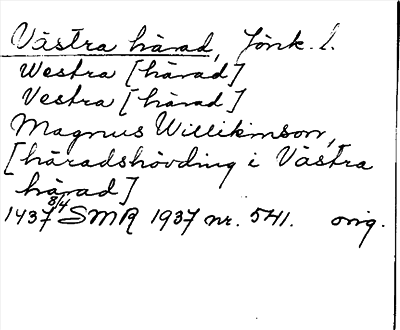 Västra härad, Jönk. l.
Westra [härad]
Vestra [härad]
Magnus Willikinson,
[häradshövding i Västra
härad]
1437 8/4 SMR 1937 nr. 541. orig.